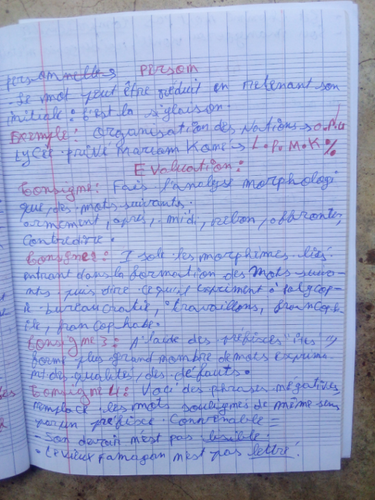 personnelles Person
- Le mot peut être réduit en retenant son
initiale : c'est la siglaison.
Exemple : Organisation des Nations → O.N.U
Lycée privé Mariam Kone → L.P.M.K.
Evaluation :
Consigne 1 : Fais l'analyse morphologi
que des mots suivants.
armement, après-midi,
Contredire.
Consigne 2 : Isole les morphèmes liés
entrant dans la formation des Mots suiva-
nts puis dire ce qu'ils expriment :
bureaucratie, travaillons, francoph
ile, francophobe.
Consigne 3 : A l'aide des préfixes
forme plus grand nombre de mots exprima
nt des qualités, des défauts.
Consigne 4 : Voici des phrases négatives
remplace les mots soulignés de même sens
par un préfixe Convenable =
- Son devoir n'est pas lisible.
- Le vieux n'est pas lettré.